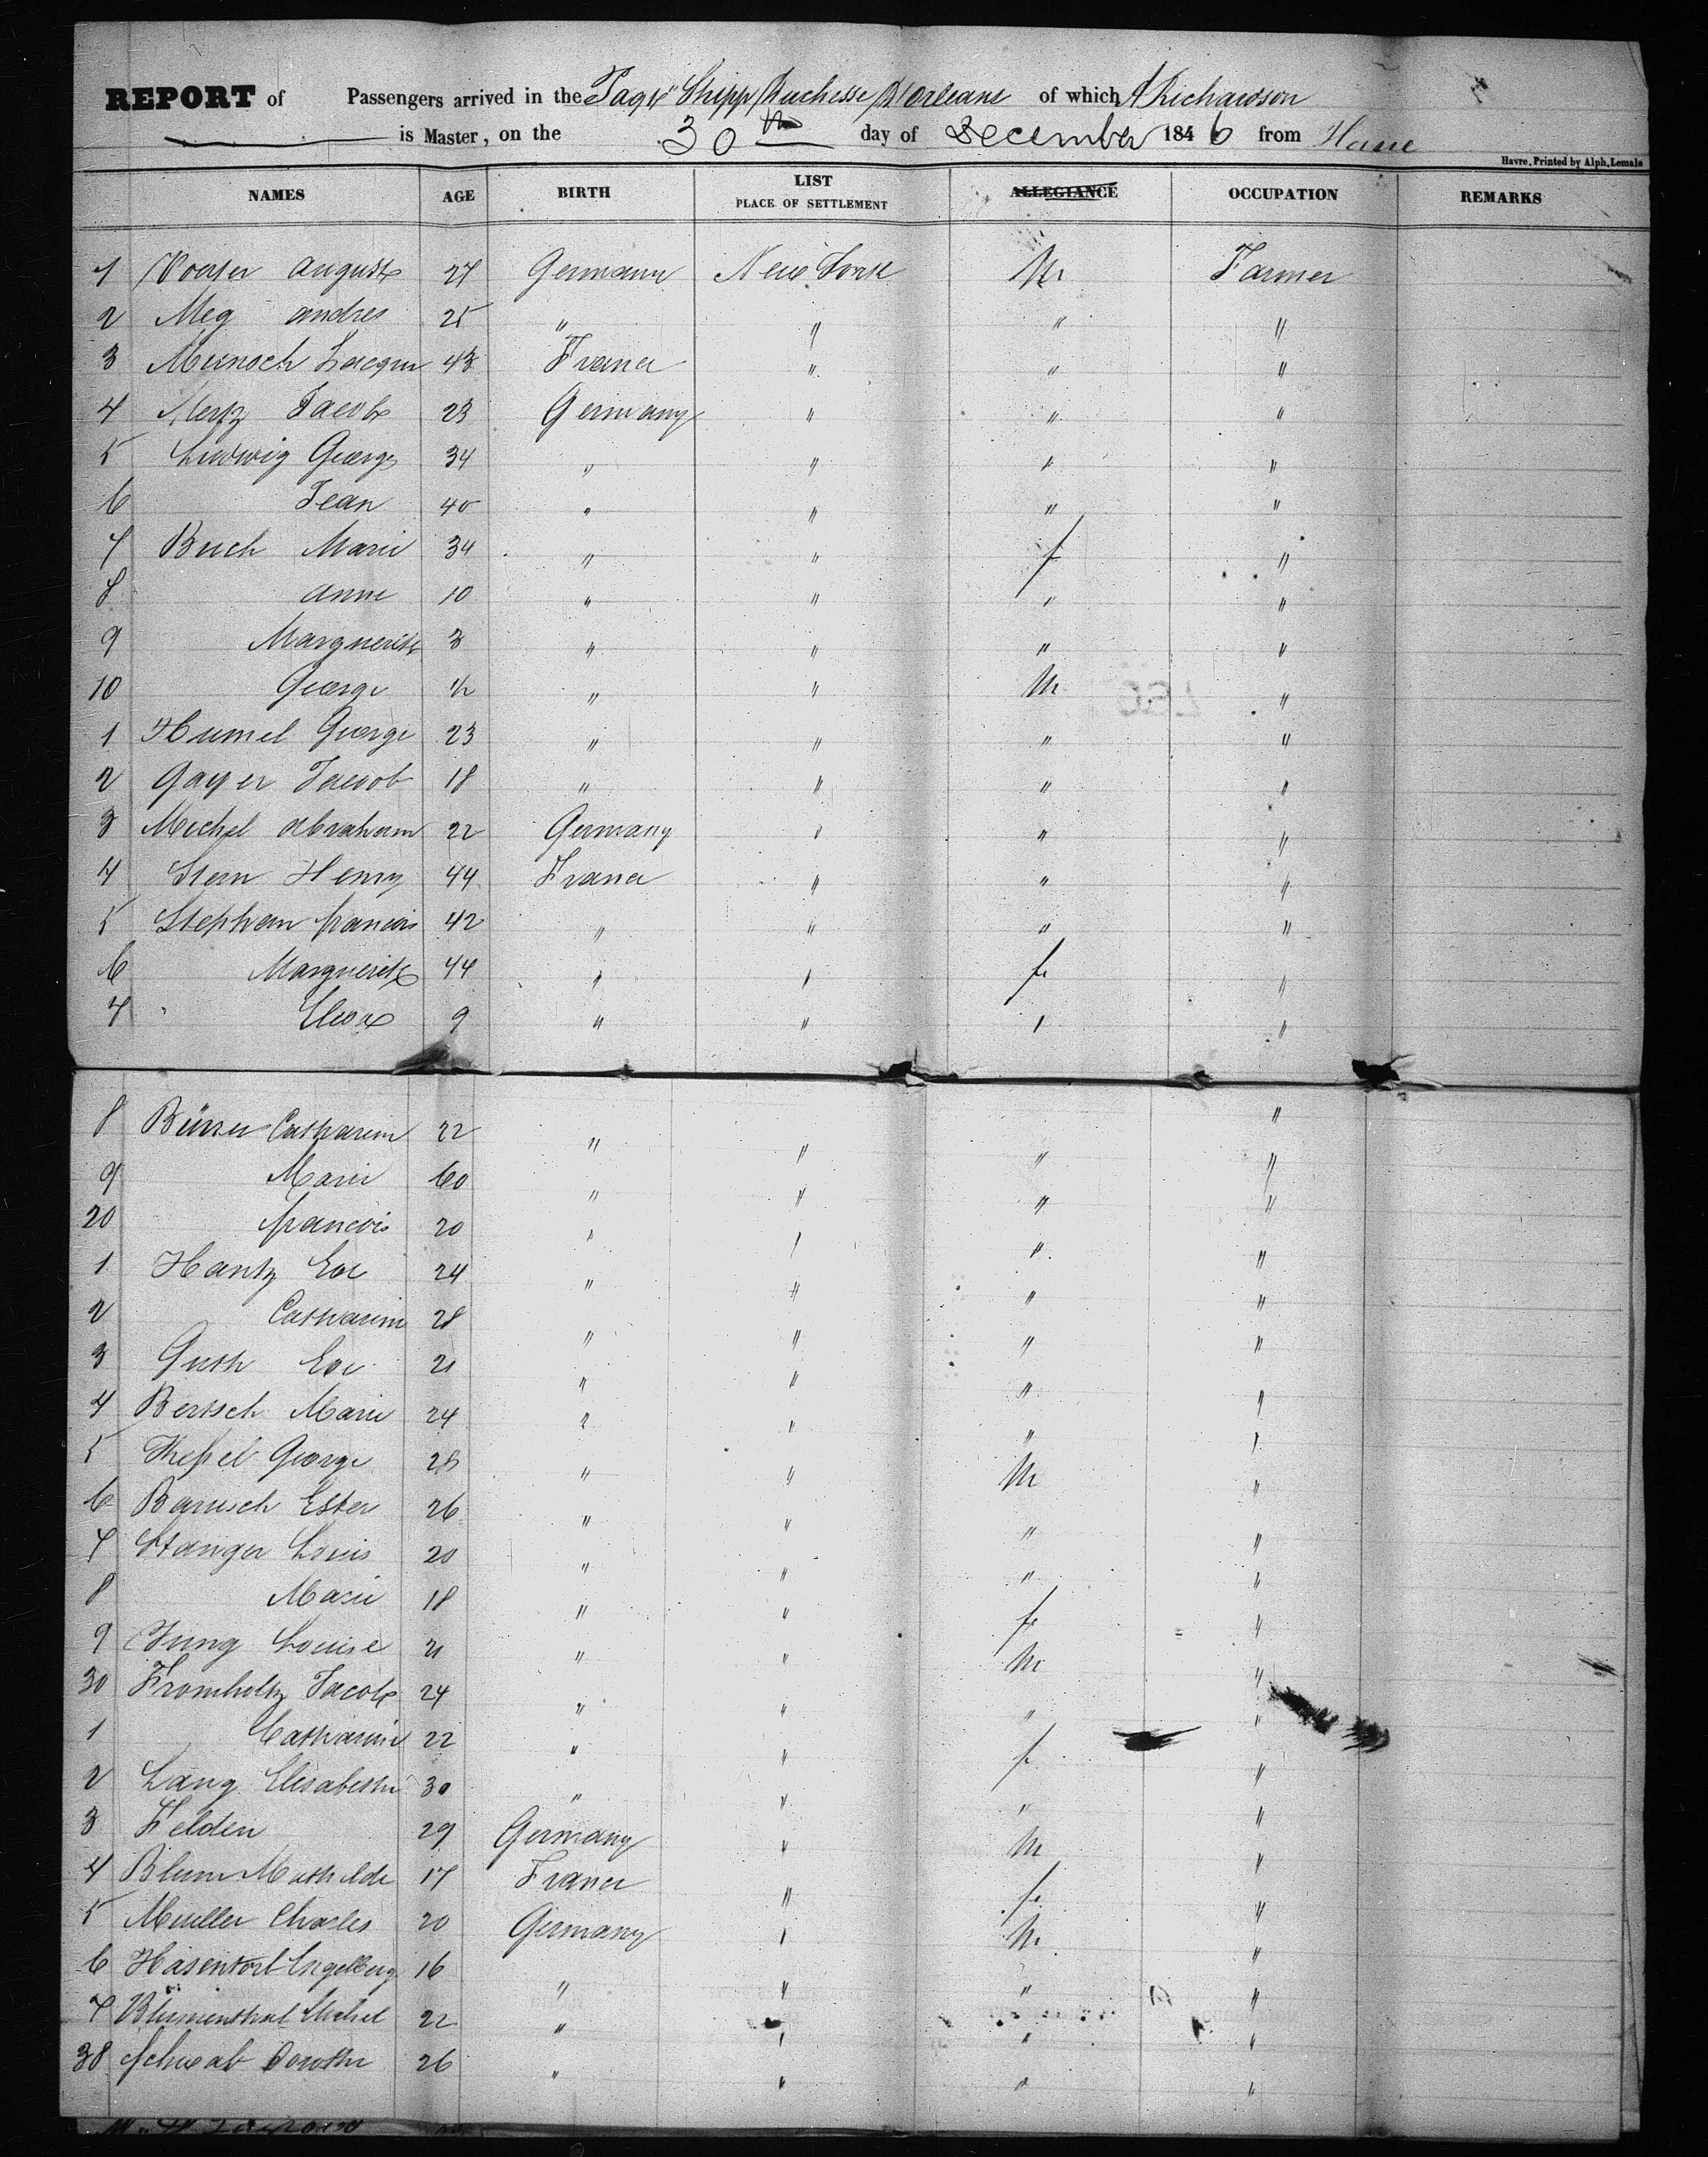 REPORT of Passengers arrived in the Pag. Shipp Duchesse D'Orleans of which A Richardson
is Master, on the 30th day of December 1846 from Havre
Havre, Printed by Alph. Lemale
NAMES AGE BIRTH LIST PLACE OF SETTLEMENT ALLEGIANCE OCCUPATION REMARKS
1 August 27 Germany New York M Farmer
2 Meg andres 25 " " " "
3 Munoch Jacque 43 France " " "
4 Mertz Jacob 23 Germany " " "
5 Ludwig George 34 " " " "
6 Jean 40 " " " "
7 Buch Marie 34 " " f "
8 Anne 10 " " " "
9 Marguerite 3 " " " "
10 George 1/2 " " M "
1 Humel George 23 " " " "
2 Gayer Jacob 18 " " " "
3 Michel Abraham 22 Germany " " "
4 Stern Henry 44 France " " "
5 Stephan francois 42 " " " "
6 Marguerite 44 " " f "
7 9 " " " "
8 Catharine 22 " " " "
9 Marie 60 " " " "
20 francois 20 " " " "
1 Hantz Eve 24 " " " "
2 Catharine 28 " " " "
3 Guth Eve 21 " " " "
4 Bertsch Marie 24 " " " "
5 George 28 " " M "
6 Barusch Ester 26 " " " "
7 Stanger Louis 20 " " " "
8 Marie 18 " " f "
9 Jung Louise 21 " " M "
30 Fromholtz Jacob 24 " " " "
1 Catharine 22 " " f "
2 Lang Elisabethe 30 " " " "
3 Felden 29 Germany " M "
4 Blum Mathilde 17 France " f "
5 Mueller Charles 20 Germany " M "
6 16 " " " "
7 Blumenthal Michel 22 " " " "
38 Schwab 26 " " " "